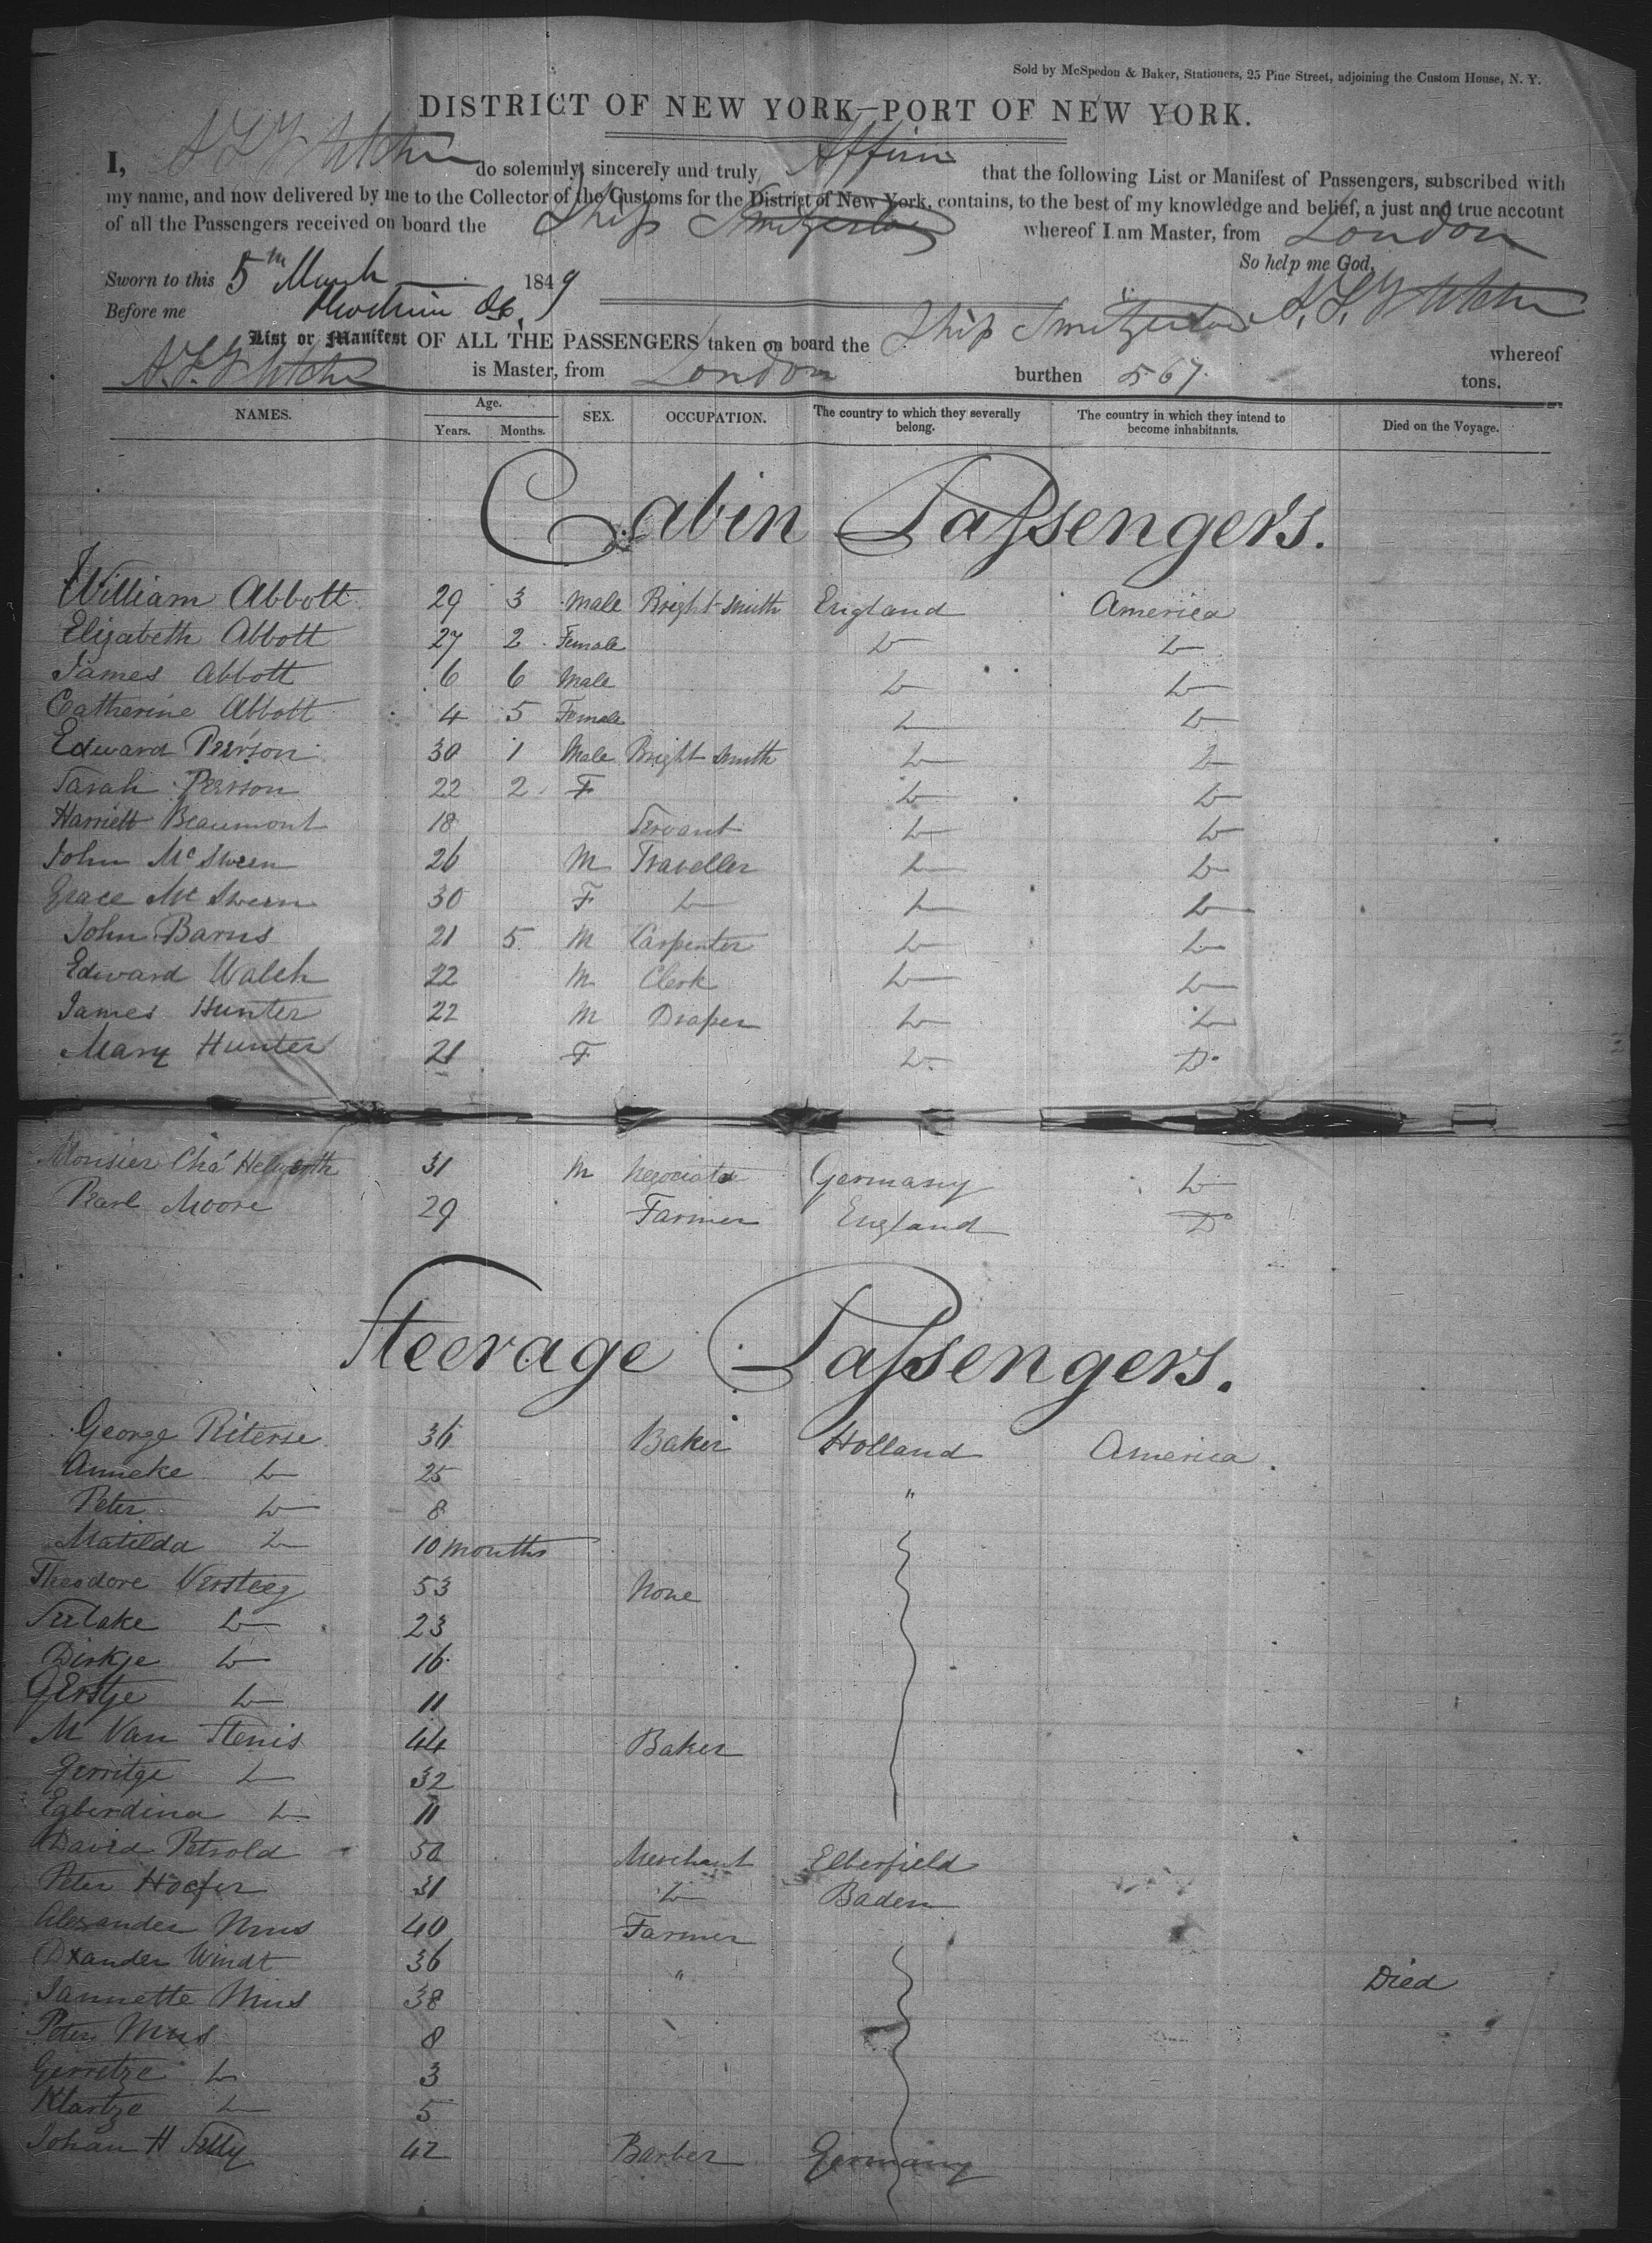 Sold by McSpedon & Baker, Stationers, 25 Pine Street, adjoining the Custom House, N. Y.
DISTRICT OF NEW YORK—PORT OF NEW YORK.
I, do solemnly, sincerely and truly Affirm that the following List or Manifest of Passengers, subscribed with
my name, and now delivered by me to the Collector of the Customs for the District of New York, contains, to the best of my knowledge and belief, a just and true account
of all the Passengers received on board the Ship Switzerland whereof I am Master, from London
So help me God,
Sworn to this 5th March 1849
Before me
List or Manifest OF ALL THE PASSENGERS taken on board the Ship Switzerland whereof
is Master, from London burthen 567 tons.
NAMES. Age. Years. Months. SEX. OCCUPATION. The country to which they severally belong. The country in which they intend to become inhabitants. Died on the Voyage.
Cabin Passengers.
William Abbott 29 3 Male Bright Smith England America
Elizabeth Abbott 27 2 Female Do Do
James Abbott 6 6 Male Do Do
Catherine Abbott 4 5 Female Do Do
Edward Peerson 30 1 Male Bright Smith Do Do
Sarah Peerson 22 2 F Do Do
Harriett Beaumont 18 Servant Do Do
John Mc Sween 26 M Traveller Do Do
Grace Mc Sween 30 F Do Do Do
John Barns 21 5 M Carpenter Do Do
Edward Walsh 22 M Clerk Do Do
James Hunter 22 M Draper Do Do
Mary Hunter 21 F Do Do
Monsier Chas 31 M Negociate Germany Do
Moore 29 Farmer England Do
Steerage Passengers.
George Riterse 36 Baker Holland America.
Anneke Do 25
Peter Do 8 "
Matilda Do 10 months
Theodore Versteeg 53 None
Do 23
Dirkje Do 16
Gerstje Do 11
M Van Stenis 44 Baker
Gerritge Do 32
Egberdina Do 11
David Petsold 50 Merchant Elberfield
Peter Hoefer 31 Do Baden
Alexander Mus 40 Farmer
Windt 36 " Died
Jannette Mus 38
Peter Mus 8
Gerretze Do 3
Klartze Do 5
Johan H 42 Barber Germany